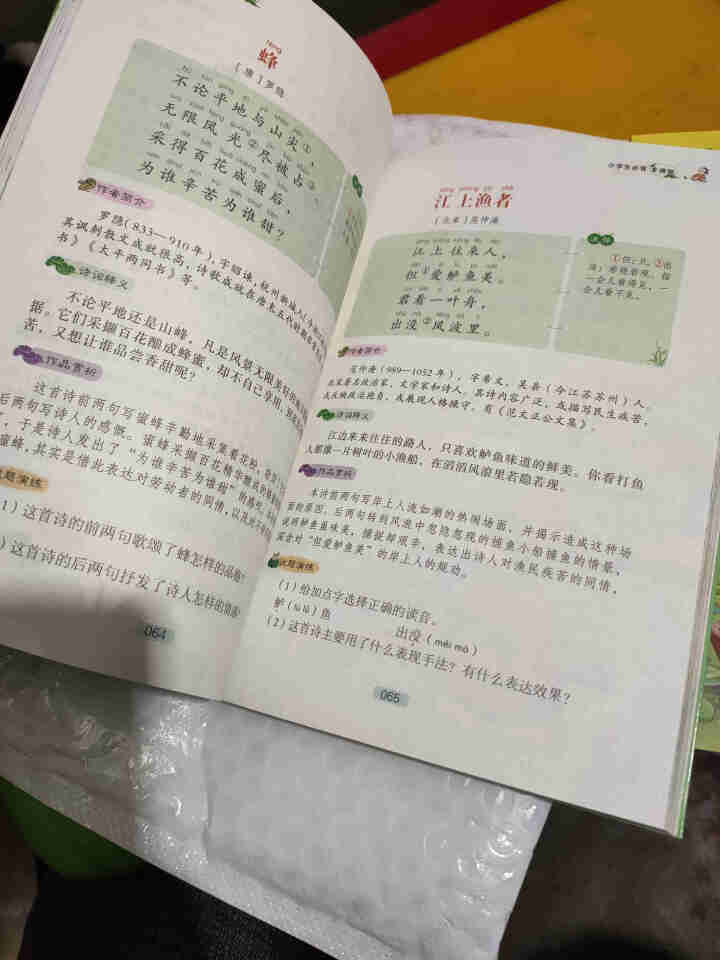 fēng
蜂
〔唐〕罗隐
不论平地与山尖①，
无限风光②尽被占③。
采得百花成蜜后，
为谁辛苦为谁甜？
作者简介
罗隐（833—910年），字昭谏，杭州新城人
其讽刺散文成就很高，诗歌成就在唐末五代
书》《太平两同书》等。
诗词释义
不论平地还是山峰，凡是风景无限美好的
据。它们采撷百花酿成蜂蜜，却不自己享用，
苦，又想让谁品尝香甜呢？
作品赏析
这首诗前两句写蜜蜂辛勤地采集着花粉，
后两句写诗人的感慨。蜜蜂采撷百花精华酿成
，于是诗人发出了“为谁辛苦为谁甜”的感叹。
蜜蜂，其实是借此表达对劳动者的同情，以及
题演练
1）这首诗的前两句歌颂了蜂怎样的品格？
）这首诗的后两句抒发了诗人怎样的情感？
064
小学生必背
江上渔者
〔北宋〕范仲淹
江上往来人，
但①爱鲈鱼美。
君看一叶舟，
出没②风波里。
注释
①但：只。②出
没：若隐若现。指
一会儿看得见，一
会儿看不见。
作者简介
范仲淹（989—1052年），字希文，吴县（今江苏苏州）人。
北宋著名政治家、文学家和诗人。其诗内容广泛，或描写民生疾苦，
或反映政治抱负，或展现人格操守。有《范文正公文集》。
诗词释义
江边来来往往的路人，只喜欢鲈鱼味道的鲜美。你看打鱼
人那像一片树叶的小渔船，在滔滔风浪里若隐若现。
作品赏析
本诗前两句写岸上人流如潮的热闹场面，并揭示造成这种场
面的原因。后两句转到风浪中忽隐忽现的捕鱼小船捕鱼的情景，
说明鲈鱼虽味美，捕捉却艰辛，表达出诗人对渔民疾苦的同情，
深含对“但爱鲈鱼美”的岸上人的规劝。
试题演练
（1）给加点字选择正确的读音。
鲈（lú lǔ）鱼 出没（méi mò）
（2）这首诗主要用了什么表现手法？有什么表达效果？
065